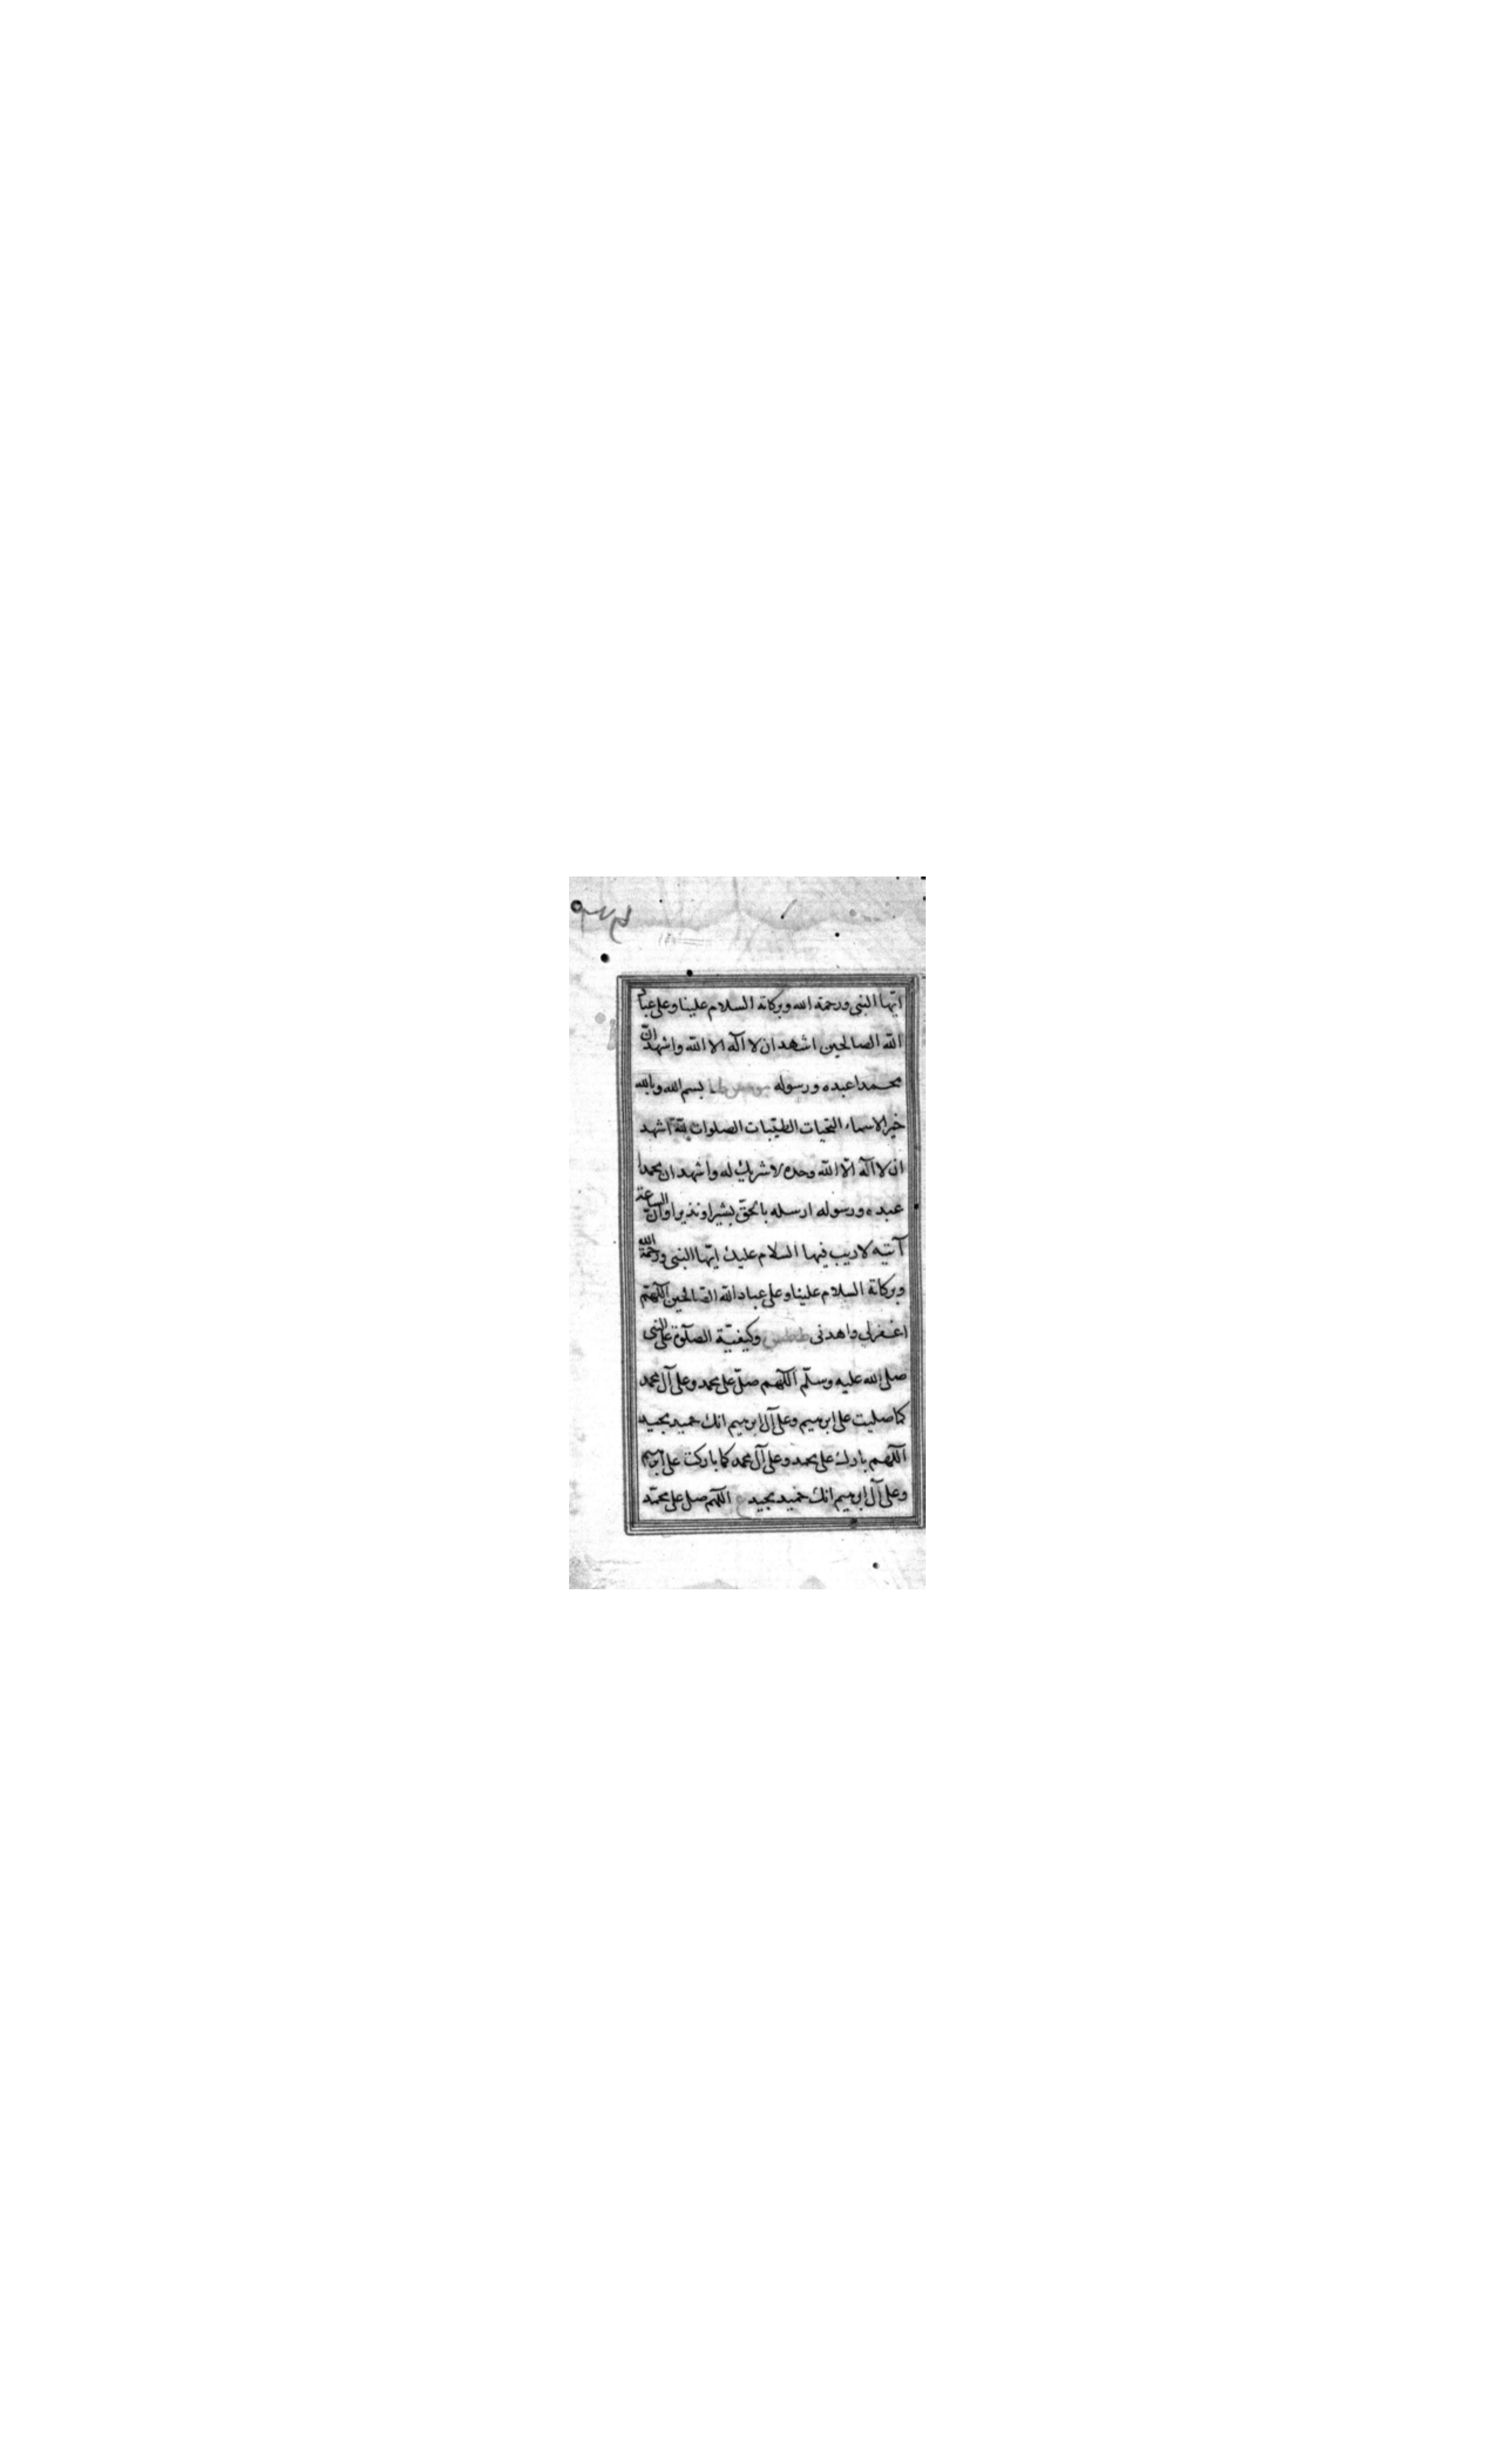 ايّها النبى ورحمة الله وبركاته السلام علينا وعلى عباد
الله الصالحين اشهد ان لا اله الا الله واشهد انّ
محمدا عبده ورسوله بسم الله وبالله
خير الاسماء التحيات الطيّبات الصلوات لله اشهد
ان لا اله الّا الله وحده لا شريك له واشهد ان محمدا
عبده ورسوله ارسله بالحقّ بشيرا ونذيرا وانّ الساعة
آتية لا ريب فيها السلام عليك ايّها النبى ورحمة الله
وبركاته السلام علينا وعلى عباد الله الصالحين اللهمّ
اغفرلي واهدنى وكيفيّة الصلوة على النبى
صلى الله عليه وسلّم اللهم صلّ على محمد وعلى آل محمد
كما صليت على ابرهيم وعلى آل ابرهيم انك حميد مجيد
اللهم بارك على محمد وعلى آل محمد كما باركت على ابرهيم
وعلى آل ابرهيم انك حميد مجيد اللهم صل على محمّد